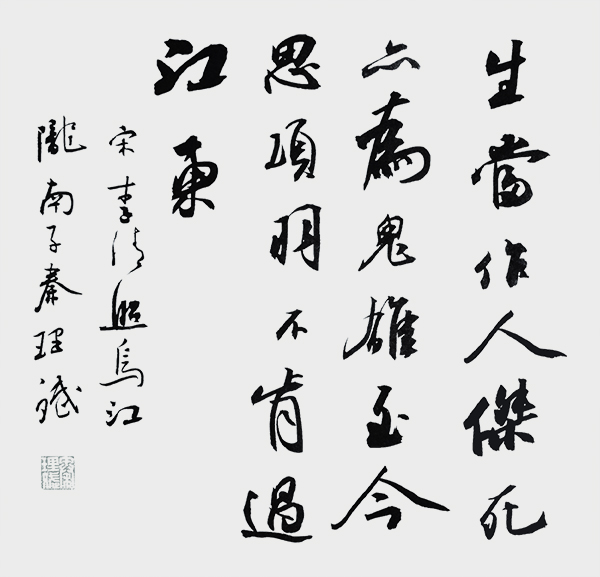 生當作人傑死
亦為鬼雄至今
思項羽不肯過
江東
宋李清照烏江
隴南子秦理斌